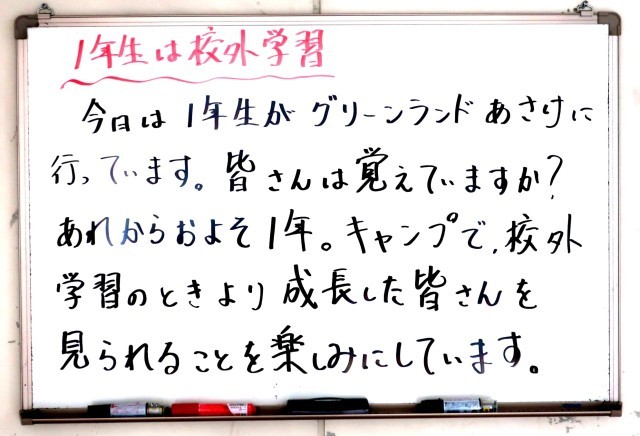 1年生は校外学習
今日は1年生がグリーンランドあさけに
行っています。皆さんは覚えていますか?
あれからおよそ1年。キャンプで、校外
学習のときより成長した皆さんを
見られることを楽しみにしています。